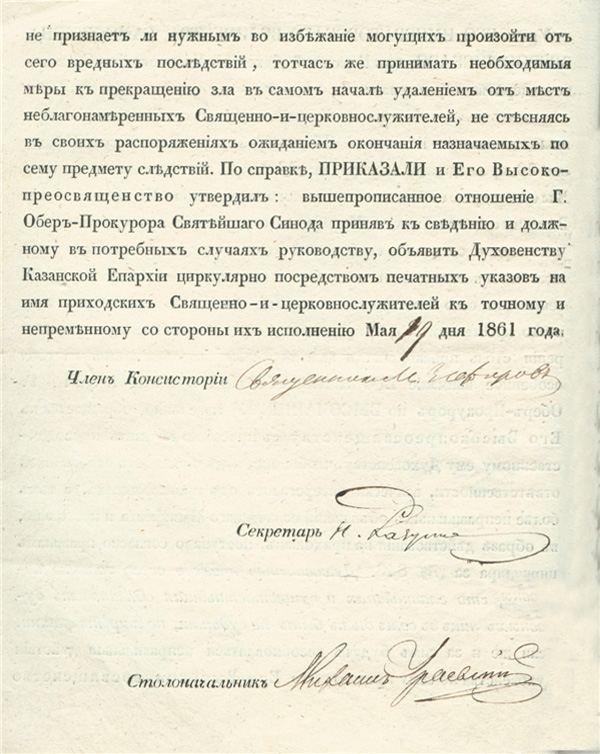 не признаетъ ли нужнымъ во избѣжаніе могущихъ произойти отъ
сего вредныхъ послѣдствій, тотчасъ же принимать необходимыя
мѣры къ прекращенію зла въ самомъ началѣ удаленіемъ отъ мѣстъ
неблагонамѣренныхъ Священно-и-церковнослужителей, не стѣсняясь
въ своихъ распоряженіяхъ ожиданіемъ окончанія назначаемыхъ по
сему предмету слѣдствій. По справкѣ, ПРИКАЗАЛИ и Его Высоко-
преосвященство утвердилъ: вышепрописанное отношеніе Г.
Оберъ-Прокурора Святѣйшаго Синода принявъ къ свѣдѣнію и долж-
ному въ потребныхъ случаяхъ руководству, объявить Духовенству
Казанской Епархіи циркулярно посредствомъ печатныхъ указовъ на
имя приходскихъ Священно-и-церковнослужителей къ точному и
непремѣнному со стороны ихъ исполненію Мая 19 дня 1861 года.
Членъ Консисторіи Священникъ М.
Секретарь Н.
Столоначальникъ Михаилъ